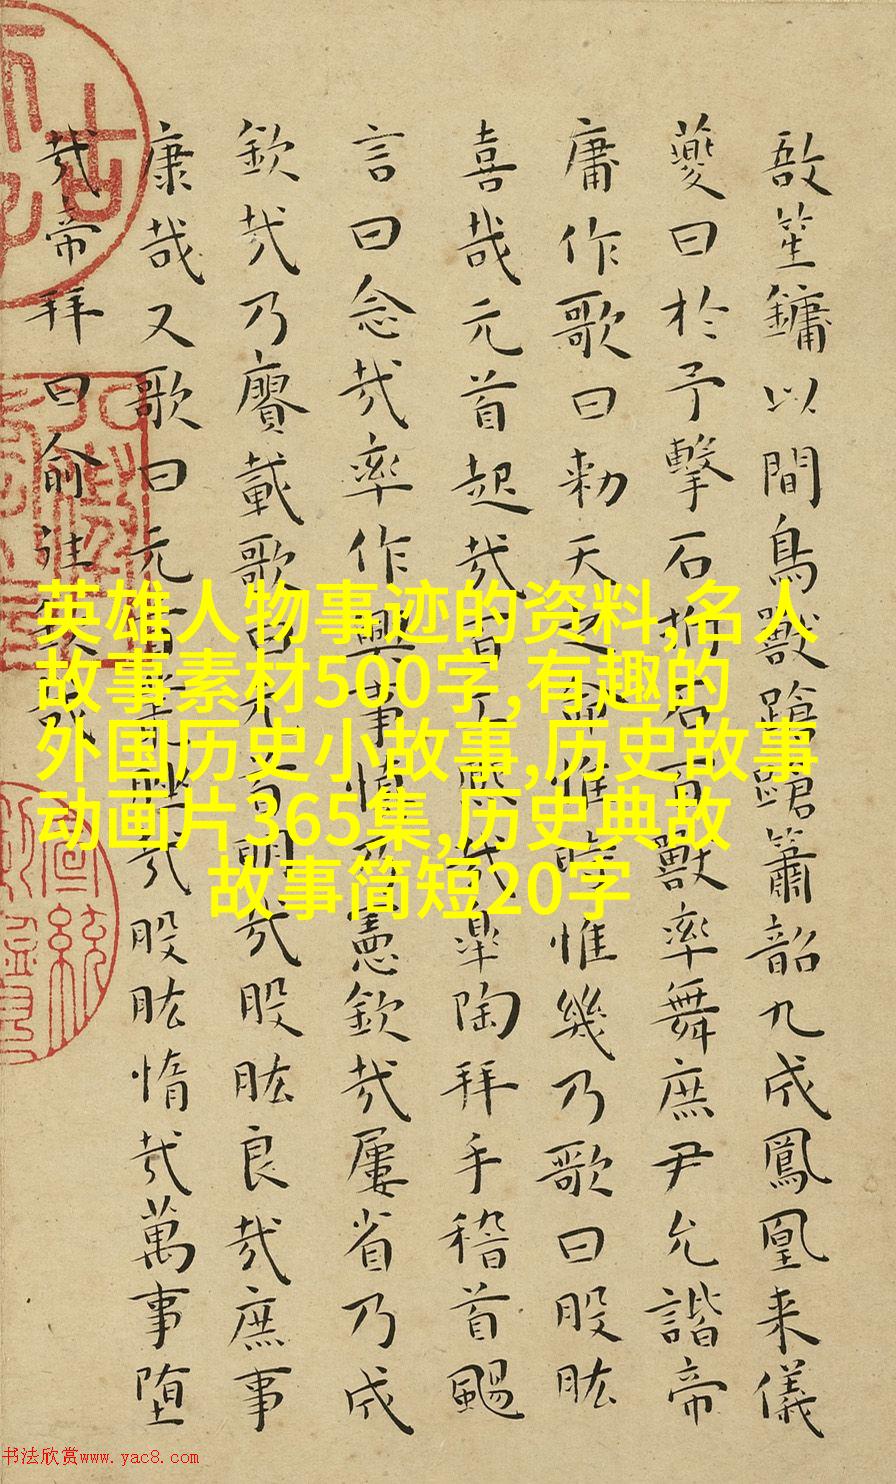 敔笙鏞以間鳥獸蹌蹌簫韶九成鳳凰来儀
夔曰於予擊石拊石百獸率舞庶尹允諧帝
庸作歌曰勑天之命惟時惟幾乃歌曰股肱
喜哉元首起哉百工熙哉皐陶拜手稽首颺
言曰念哉率作興事慎乃憲欽哉屢省乃成
欽哉乃賡載歌曰元首明哉股肱良哉庶事
康哉又歌曰元首叢脞哉股肱惰哉萬事堕
哉帝拜曰俞往欽哉
英雄人物事迹的资料,名人
故事素材500字,有趣的
外国历史小故事,历史故事
动画片365集,历史典故
故事简短20字
书法欣赏www.yac8.com